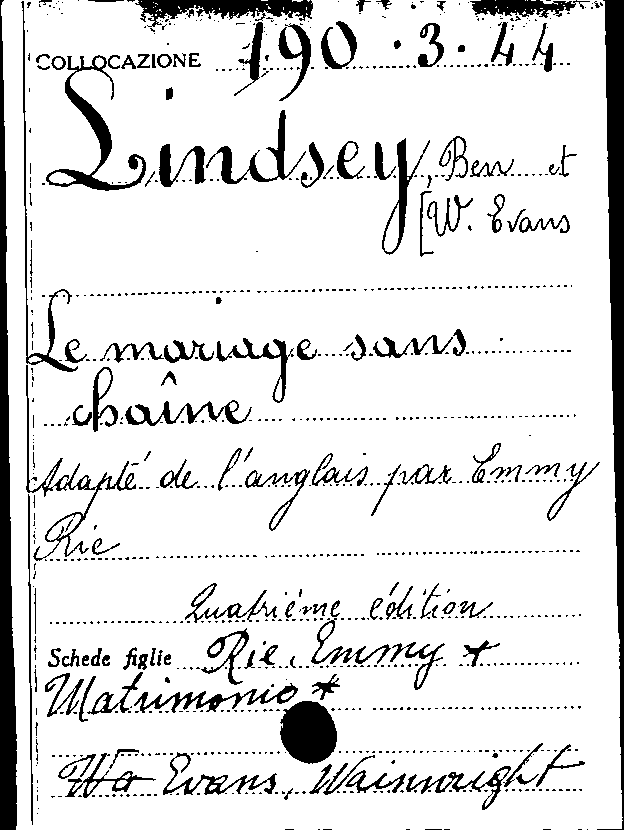 COLLOCAZIONE 190.3.44
Lindsey, Ben et
[W. Evans
Le mariage sans
chaîne
Adapté de l'anglais par Emmy
Rie
Quatriéme édition
Schede figlie Rie, Emmy *
Matrimonio *
Wa Evans, Wainwright